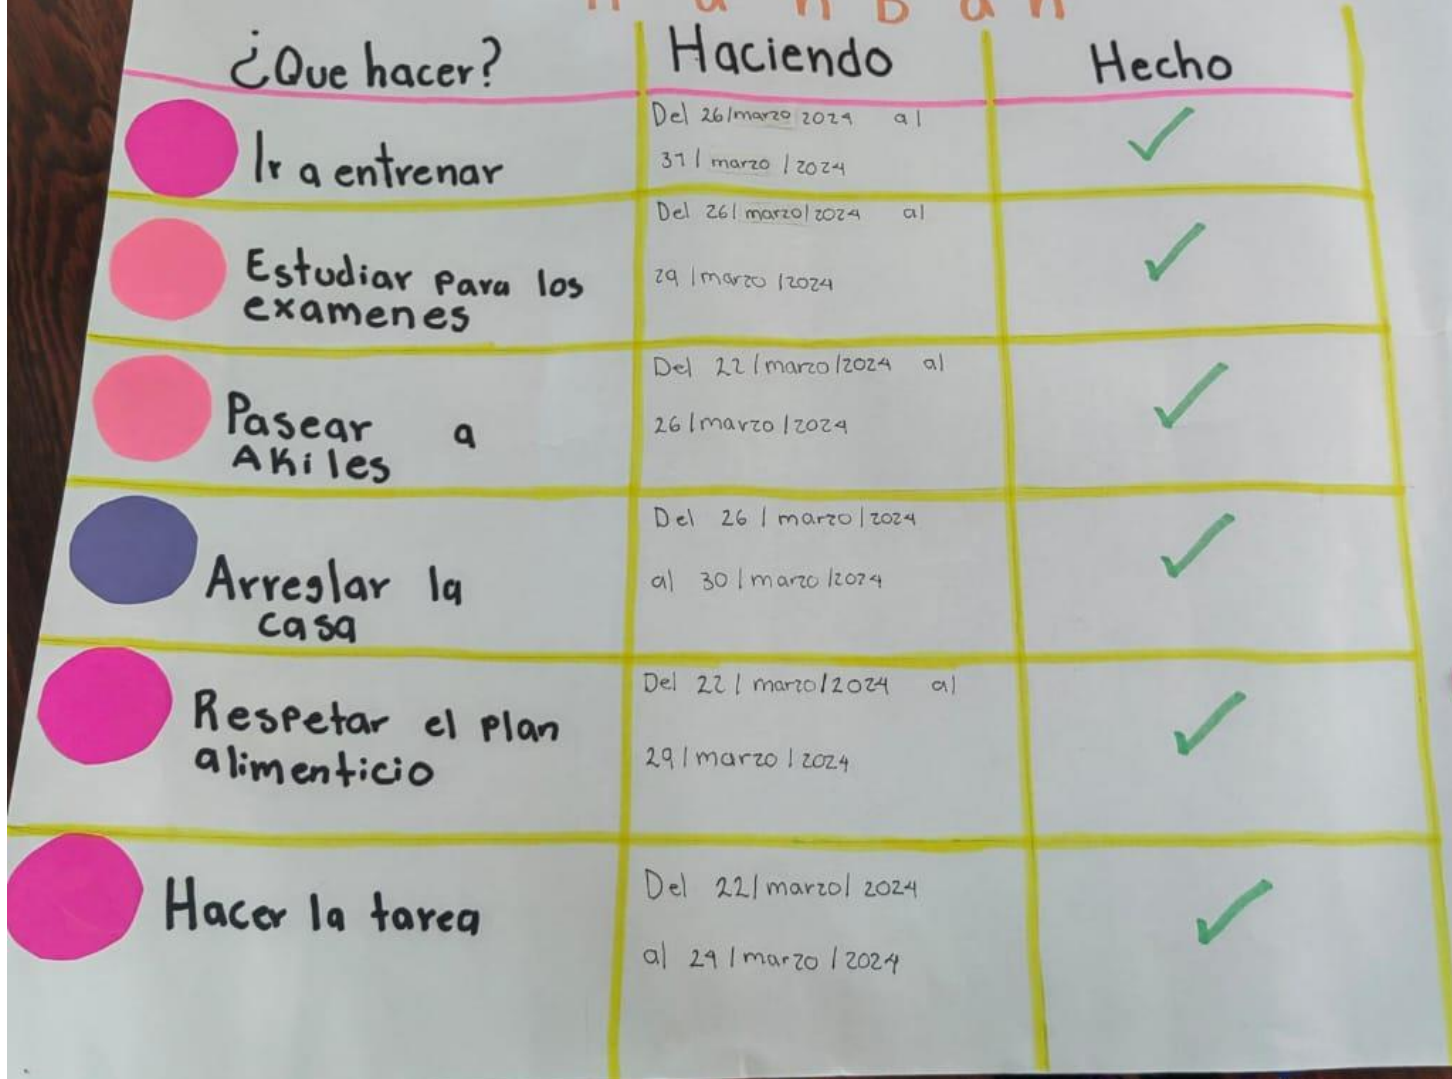 KanBan
¿Que hacer?
Haciendo
Hecho
Ir a entrenar
Del 26/marzo 2024 al
31/ marzo / 2024
Estudiar Para los
examenes
Del 26/ marzo/ 2024 al
29 /marzo /2024
Pasear a
AKiles
Del 22 /marzo /2024 al
26 /marzo / 2024
Arreglar la
casa
Del 26 / marzo / 2024
al 30 / marzo /2024
Respetar el Plan
alimenticio
Del 22 / marzo/2024 al
29 / marzo / 2024
Hacer la tarea
Del 22/ marzo/ 2024
al 29 / marzo / 2024